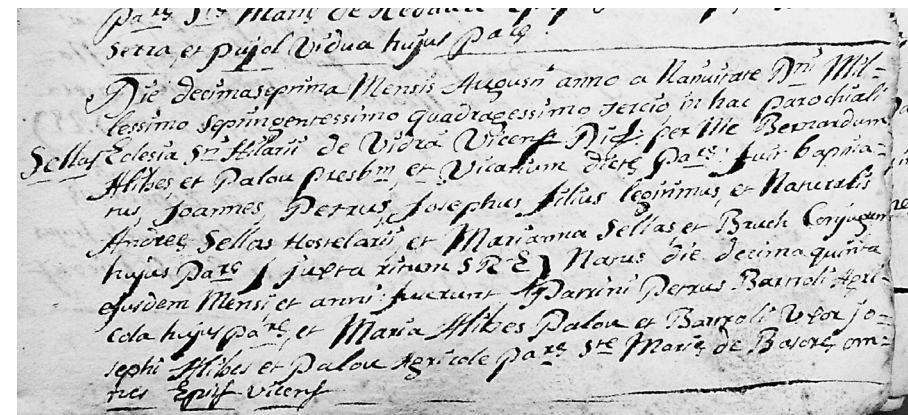 Parę Stę Marię de
Serra, et Pujol Vidua hujus Parę.
Die decimaseptima Mensis Augusti anno a Nativitate Dni Mil-
lessimo septingentessimo quadragessimo tercio in hac Parochiali
Sellas Eclesia Sti Hilarii de Vidrá Vicens Diń: per Me Bernardum
Alibes, et Palou Presbm et Vicarium dictę Parę: fuit baptiza-
tus, Joannes, Petrus, Josephus filius legitimus, et Naturalis
Andreę Sellas Hostelarii, et Marianna Sellas et Bruch Conjugum
hujus Parę ( juxta ritum S R E ) Natus die decima quinta
ejusdem Mensi, et anni: fuerunt Patrini Petrus Bartroli Agri-
cola hujus parę, et Maria Alibes Palou et Bartroli Uxor Jo-
sephi Alibes et Palou Agricolę parę Stę Marię de Besorę om-
nes Epis Vicens